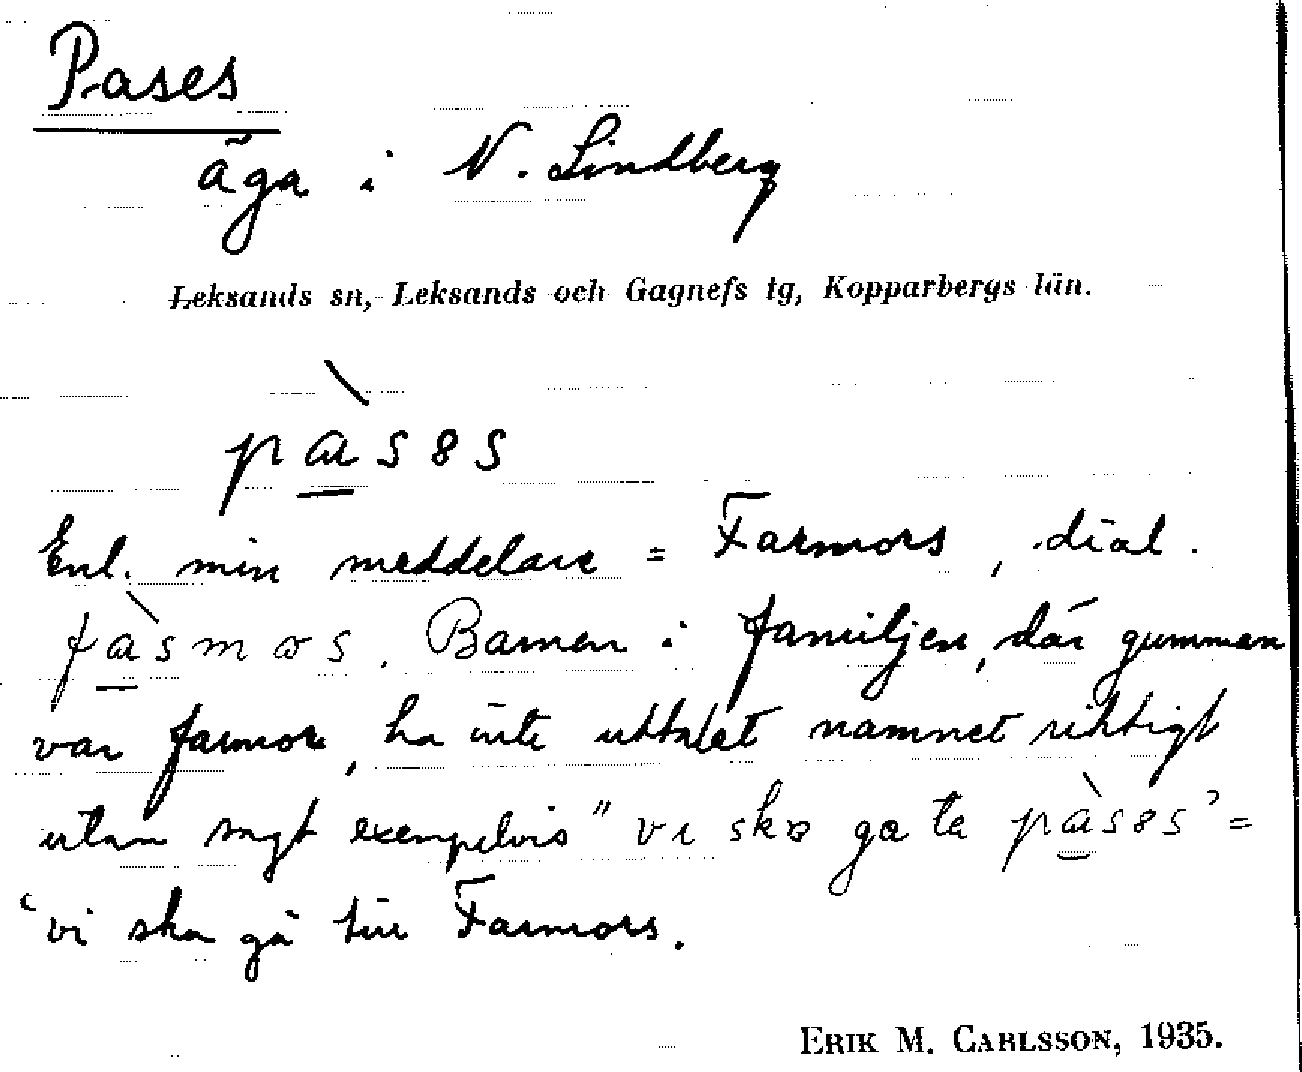 Pases
äga i N. Lindberg
Leksands sn, Leksands och Gagnefs tg, Kopparbergs län.
pàsəs
Enl. min meddelare = Farmors, dial.
fàsmɷs. Barnen i familjen, där gumman
var farmor, ha inte uttalet namnet riktigt
utan sagt exempelvis "vi ska ga te pàsəs" =
"vi ska gå till Farmors.
ERIK M. CARLSSON, 1935.